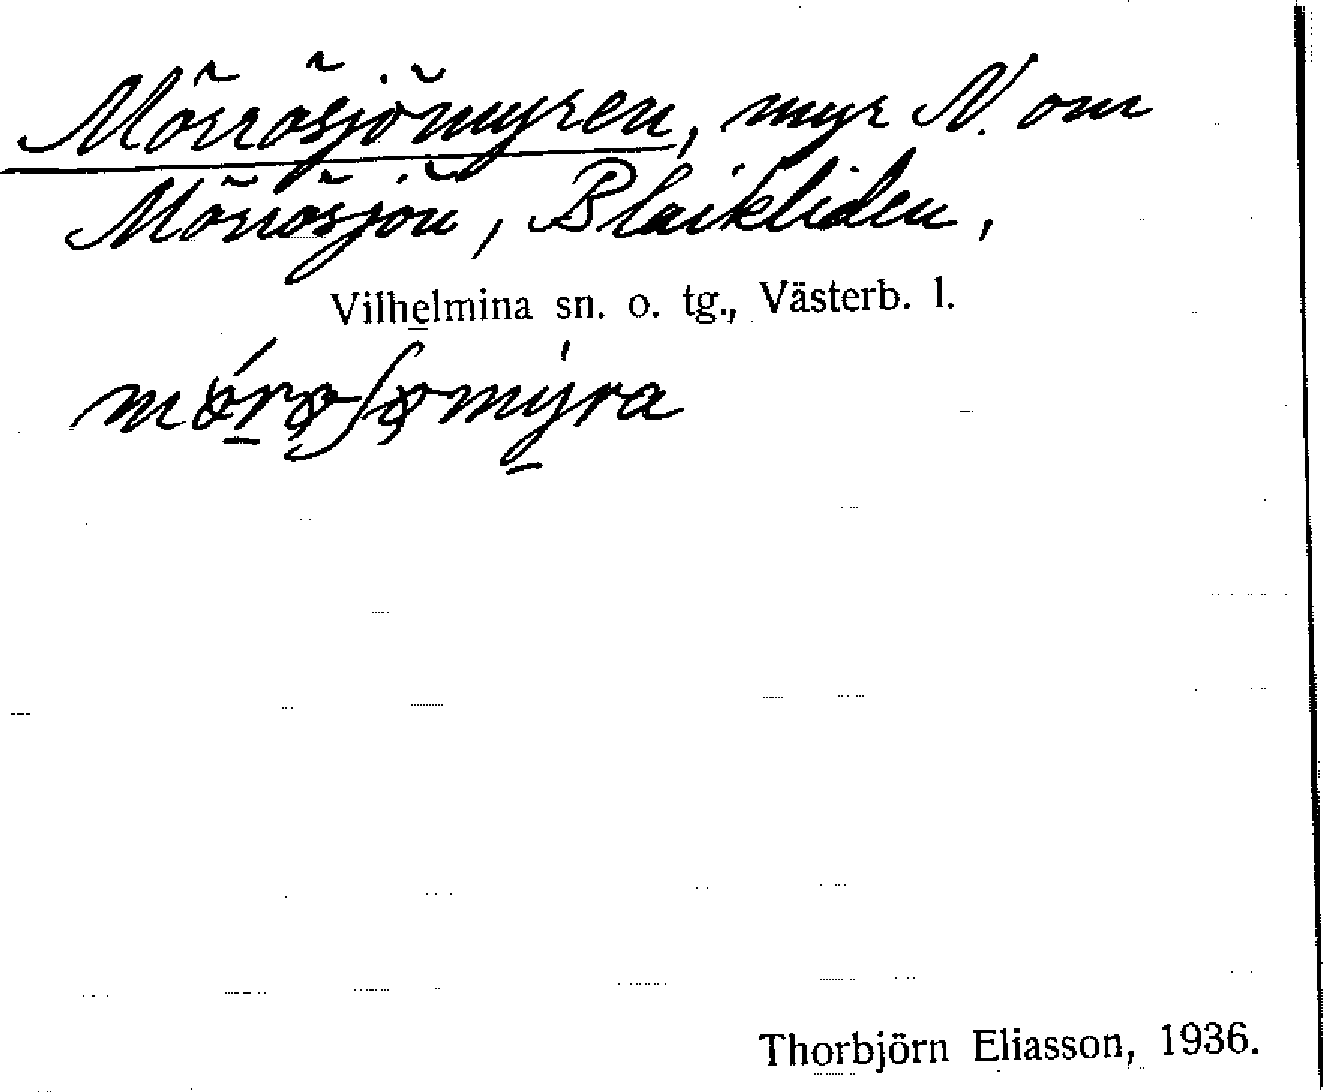 Mörrösjömyren, myr N. om
Mörrösjön, Blaikliden,
Vilhelmina sn. o. tg., Västerb. l.
Thorbjörn Eliasson, 1936.